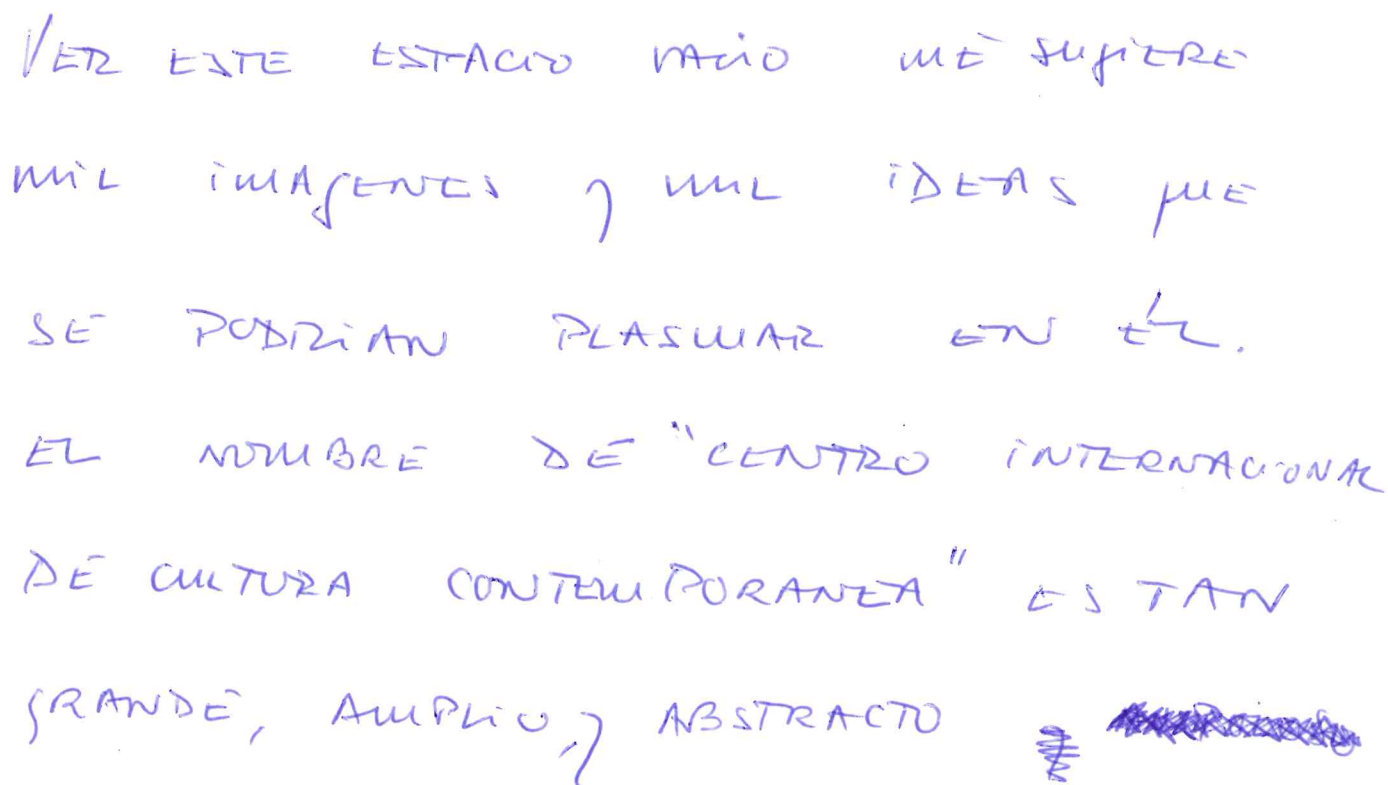 VER ESTE ESPACIO VACIO ME SUGIERE
MIL IMAGENES Y MIL IDEAS QUE
SE PODRIAN PLASMAR EN ÉL.
EL NOMBRE DE "CENTRO INTERNACIONAL
DE CULTURA CONTEMPORANEA" ES TAN
GRANDE, AMPLIO, Y ABSTRACTO